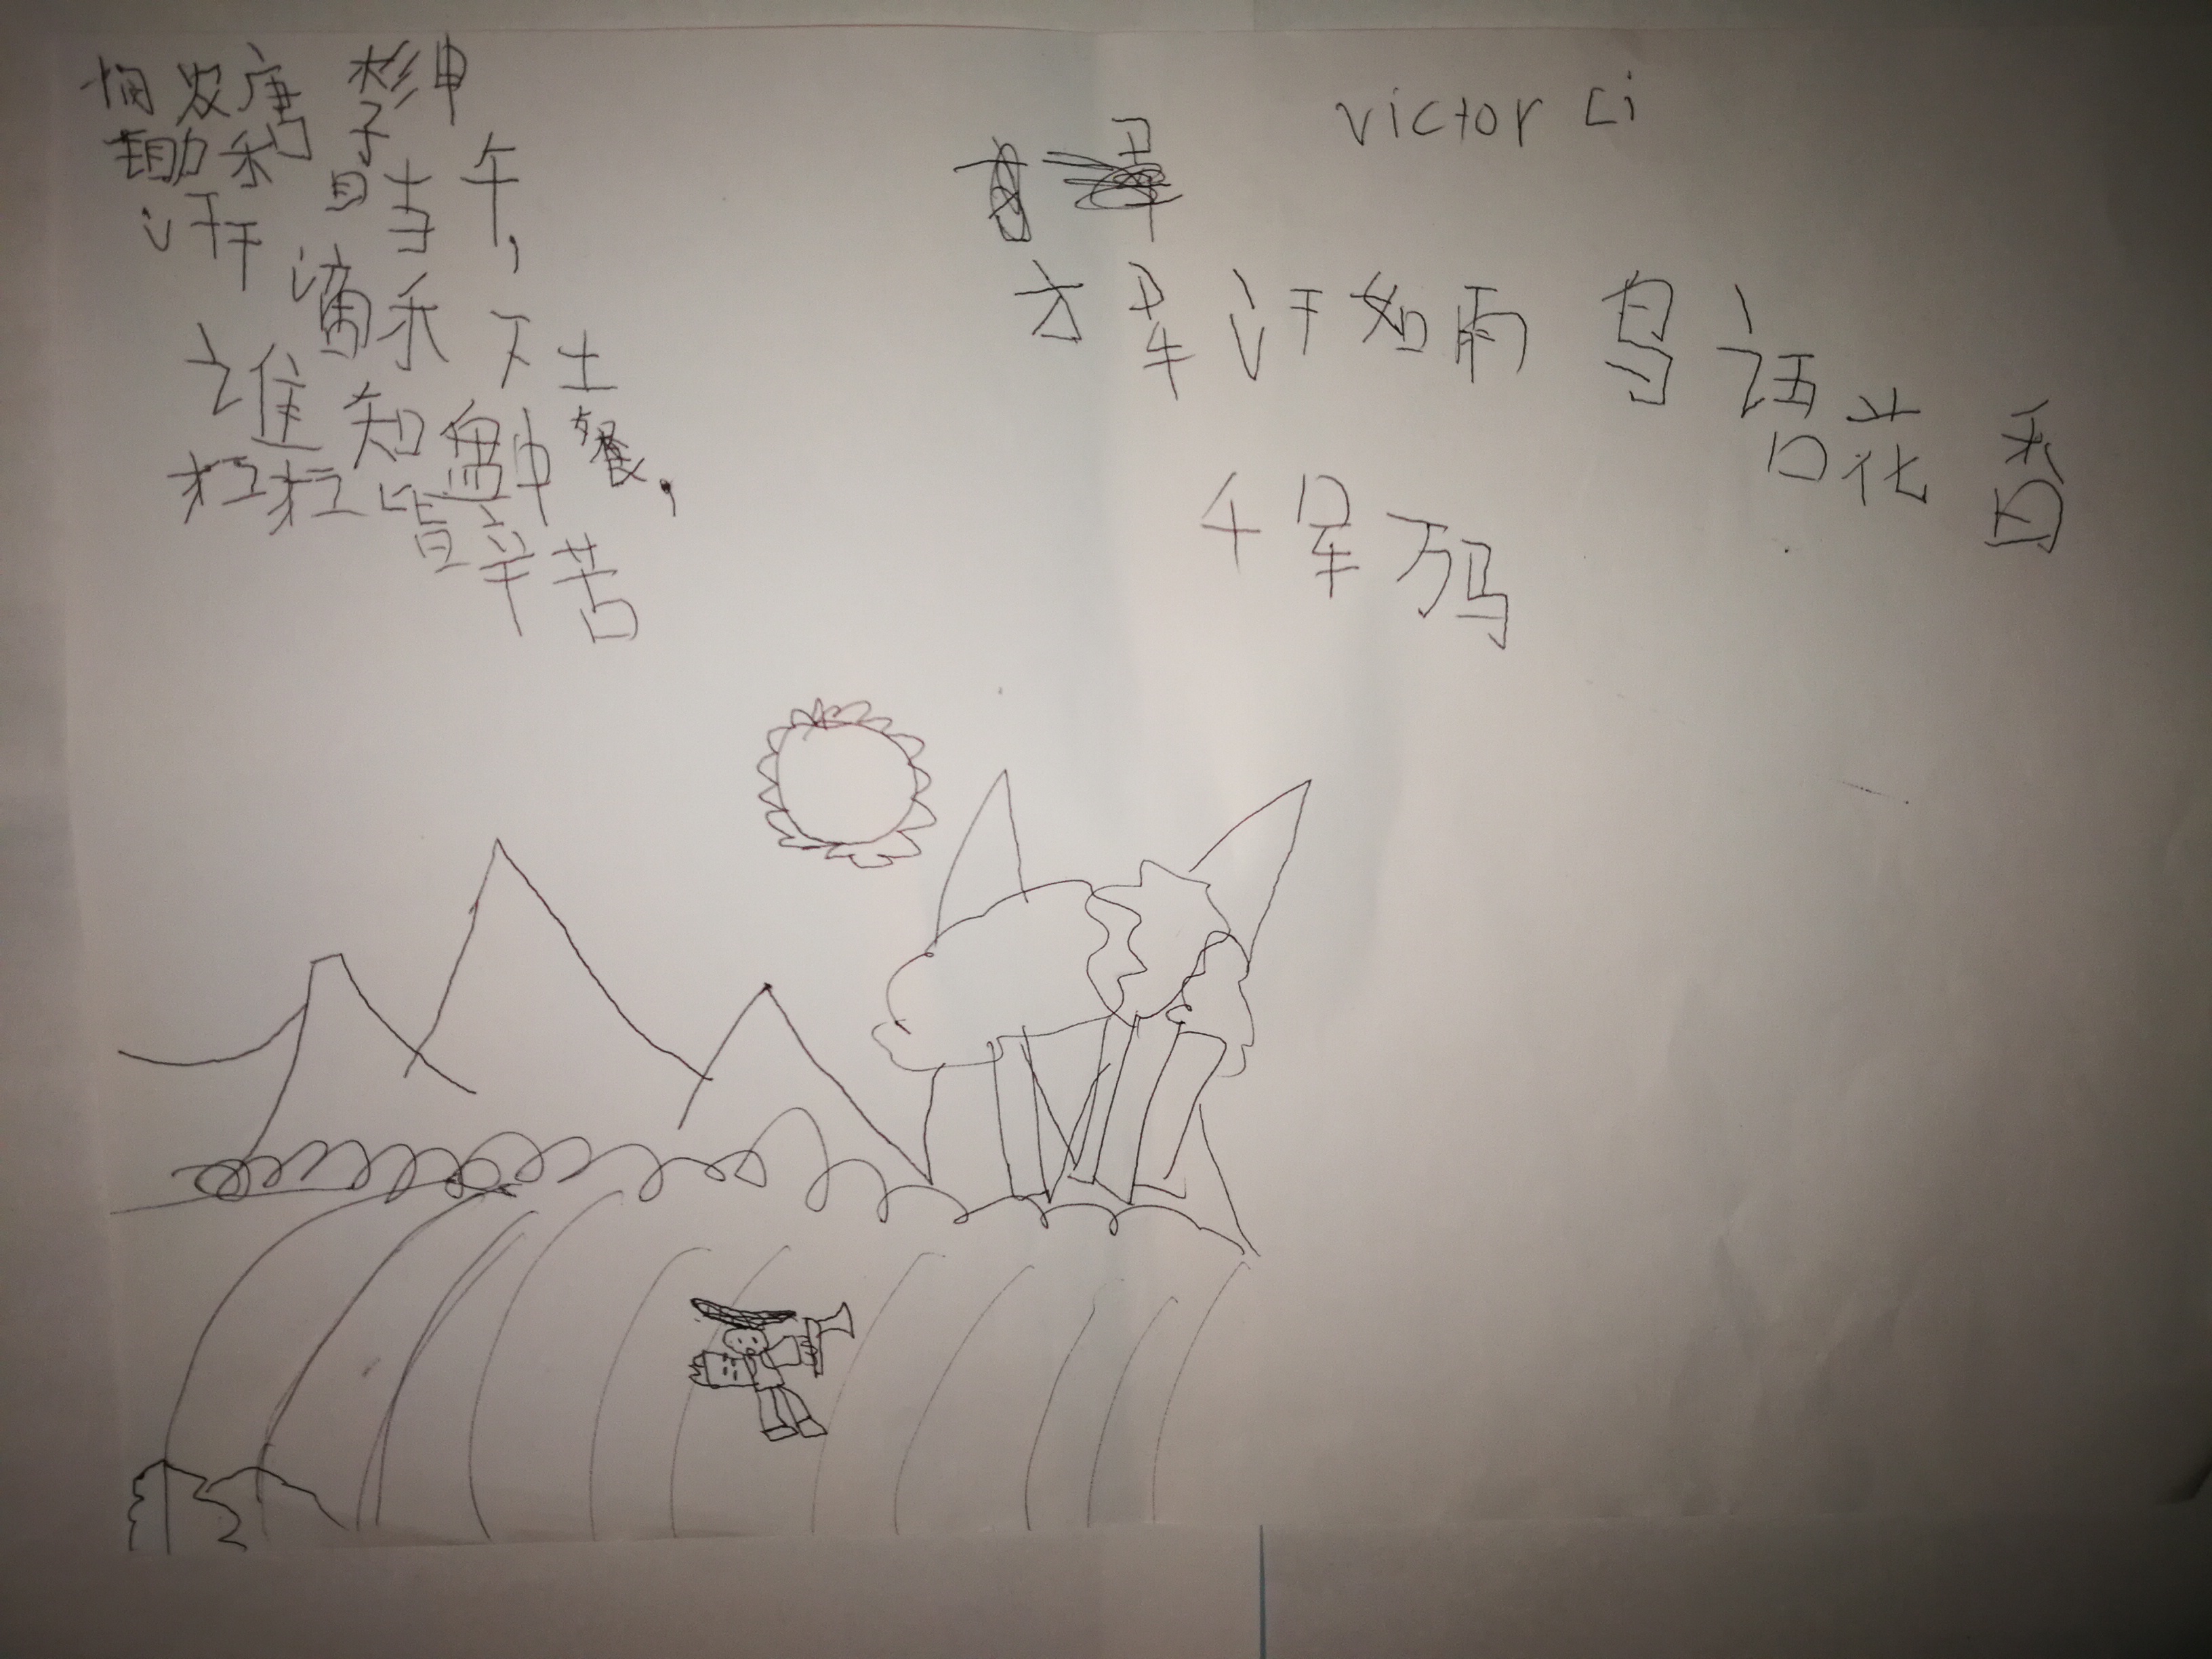 悯农 唐 李绅
锄禾日当午,
汗滴禾下土
谁知盘中餐,
粒粒皆辛苦
Victor Li
挥汗如雨 鸟语花香
千军万马